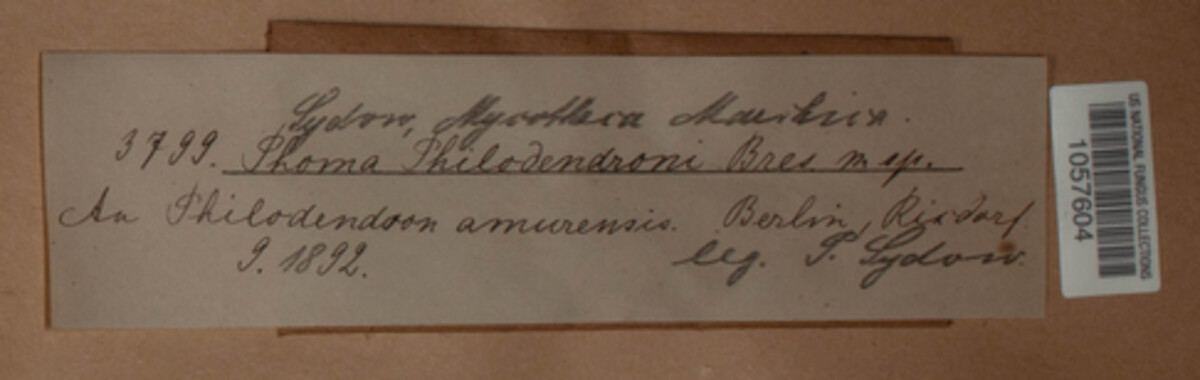 Sydow, Mycotheca Marchica.
3799. Phoma Philodendroni Bres n. sp.
An Philodendron amurensis. Berlin, Rixdorf.
9. 1892. leg. P. Sydow.
US NATIONAL FUNGUS COLLECTIONS
1057604